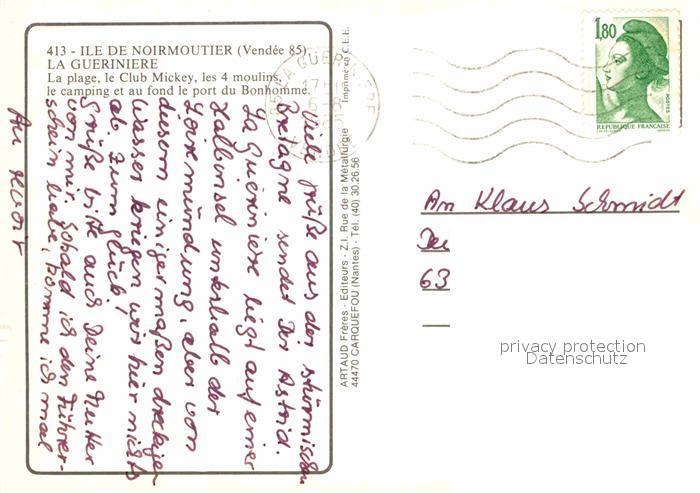 413 - ILE DE NOIRMOUTIER (Vendée 85)
LA GUERINIERE
La plage, le Club Mickey, les 4 moulins,
le camping et au fond le port du Bonhomme.
Viele Grüße aus der stürmischen
Bretagne sendet Dir Astrid.
La Guérinière liegt auf einer
Halbinsel unterhalb der
Loiremündung, aber von
diesem einigermaßen dreckigen
Wasser kriegen wir hier nichts
ab. Zum Glück!
Grüße bitte auch Deine Mutter
von mir. Sobald ich den Führer-
schein habe, komme ich mal
Au revoir
ARTAUD Frères - Editeurs - Z.I. Rue de la Métallurgie
44470 CARQUEFOU (Nantes) - Tél. (40) 30.26.56
Imprimé en C.E.E.
LA GUERINIERE
1,80
POSTES
REPUBLIQUE FRANÇAISE
An Klaus Schmidt
63
privacy protection
Datenschutz